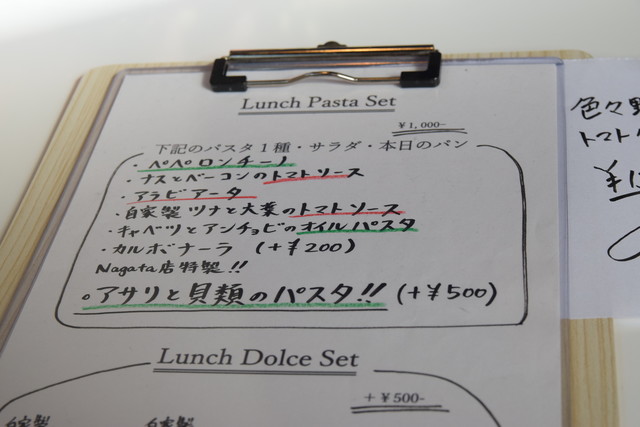 Lunch Pasta Set
¥1,000-
下記のパスタ1種・サラダ・本日のパン
・ペペロンチーノ
・ナスとベーコンのトマトソース
・アラビアータ
・自家製 ツナと大葉のトマトソース
・キャベツとアンチョビのオイルパスタ
・カルボナーラ (+¥200)
Nagata店特製!!
。アサリと貝類のパスタ!! (+¥500)
Lunch Dolce Set
+¥500-
自家製 自家製
色々野
トマト